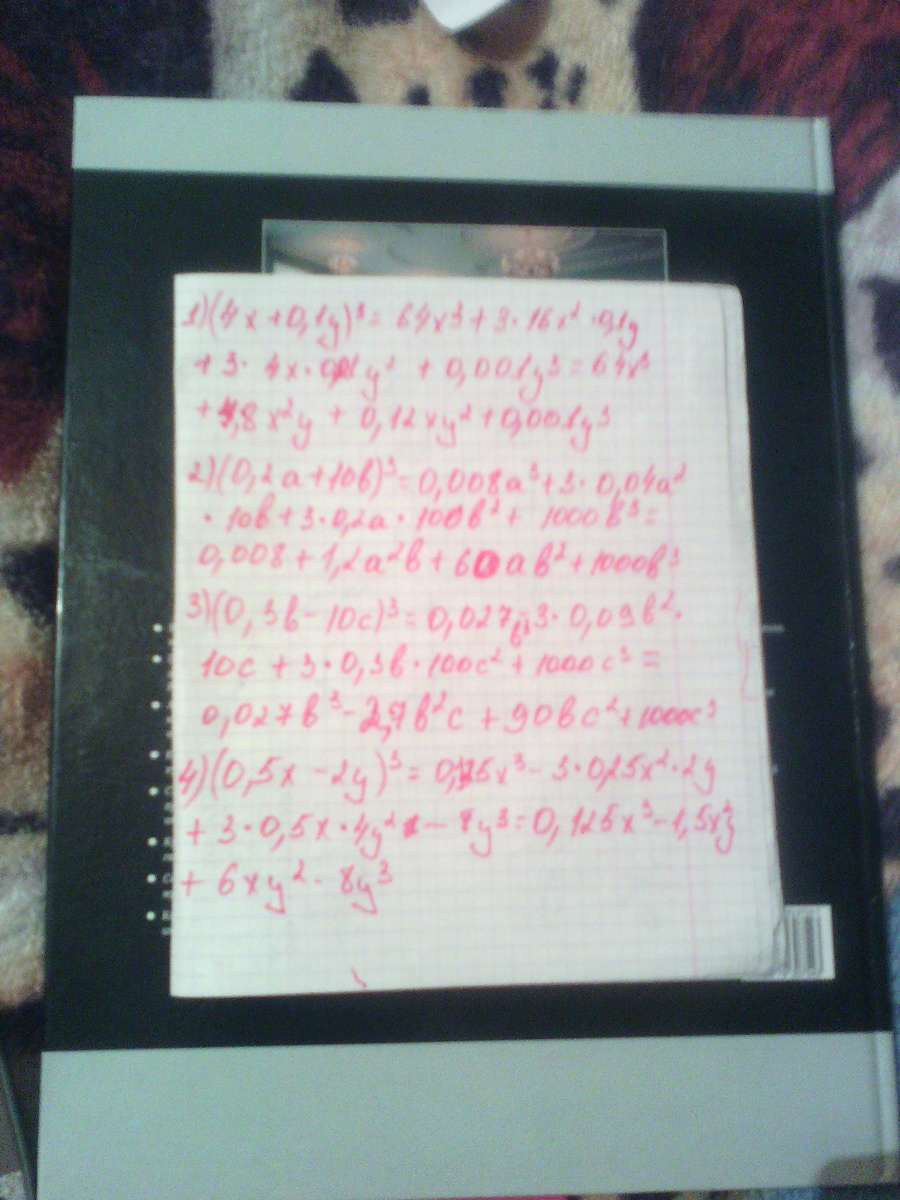 1)(4x+0,1y)³= 64x³+3·16x²·0,1y
+3· 4x·0,01y² +0,001y³=64x³
+4,8x²y + 0,12xy²+0,001y³
2)(0,2a+10b)³=0,008a³+3·0,04a²
·10b+3·0,2a·100b²+ 1000b³=
0,008+1,2a²b+60ab²+1000b³
3)(0,3b-10c)³=0,027b³-3·0,09b²·
10c+3·0,3b·100c²+1000c³=
0,027b³-2,7b²c+90bc²+1000c³
4)(0,5x-2y)³= 0,125x³-3·0,25x²·2y
+3·0,5x·4y²-8y³=0,125x³-1,5x²y
+6xy²-8y³